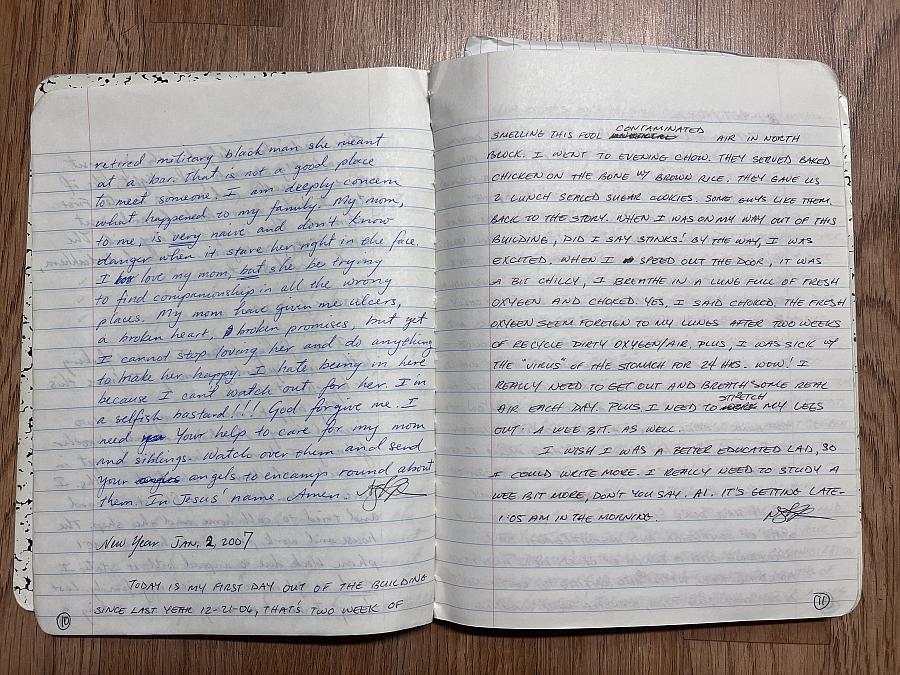 retired military black man she meant
at a bar. That is not a good place
to meet someone. I am deeply concern
what happened to my family. My mom,
to me, is very naive and don't know
danger when it stare her right in the face.
I love my mom, but she be trying
to find companionship in all the wrong
places. My mom have given me ulcers,
a broken heart, broken promises, but yet
I cannot stop loving her and do anything
to make her happy. I hate being in here
because I can't watch out for her. I'm
a selfish bastard!!! God forgive me. I
need Your help to care for my mom
and siblings. Watch over them and send
Your angels to encamp round about
them. In Jesus' name. Amen.
New Year Jan. 2, 2007
TODAY IS MY FIRST DAY OUT OF THE BUILDING
SINCE LAST YEAR 12-21-06, THAT'S TWO WEEK OF
10
SMELLING THIS FOUL CONTAMINATED AIR IN NORTH
BLOCK. I WENT TO EVENING CHOW. THEY SERVED BAKED
CHICKEN ON THE BONE W/ BROWN RICE. THEY GAVE US
2 LUNCH SEALED SUGAR COOKIES. SOME GUYS LIKE THEM.
BACK TO THE STORY. WHEN I WAS ON MY WAY OUT OF THIS
BUILDING, DID I SAY STINKS! BY THE WAY, I WAS
EXCITED. WHEN I SPEED OUT THE DOOR, IT WAS
A BIT CHILLY, I BREATHE IN A LUNG FULL OF FRESH
OXYGEN AND CHOKED. YES, I SAID CHOKED. THE FRESH
OXYGEN SEEM FOREIGN TO MY LUNGS AFTER TWO WEEKS
OF RECYCLE DIRTY OXYGEN/AIR. PLUS, I WAS SICK W/
THE "VIRUS" OF THE STOMACH FOR 24 HRS. WOW! I
REALLY NEED TO GET OUT AND BREATH SOME REAL
AIR EACH DAY. PLUS I NEED TO STRETCH MY LEGS
OUT. A WEE BIT. AS WELL.
I WISH I WAS A BETTER EDUCATED LAD, SO
I COULD WRITE MORE. I REALLY NEED TO STUDY A
WEE BIT MORE, DON'T YOU SAY. AI. IT'S GETTING LATE-
1:05 AM IN THE MORNING.
11